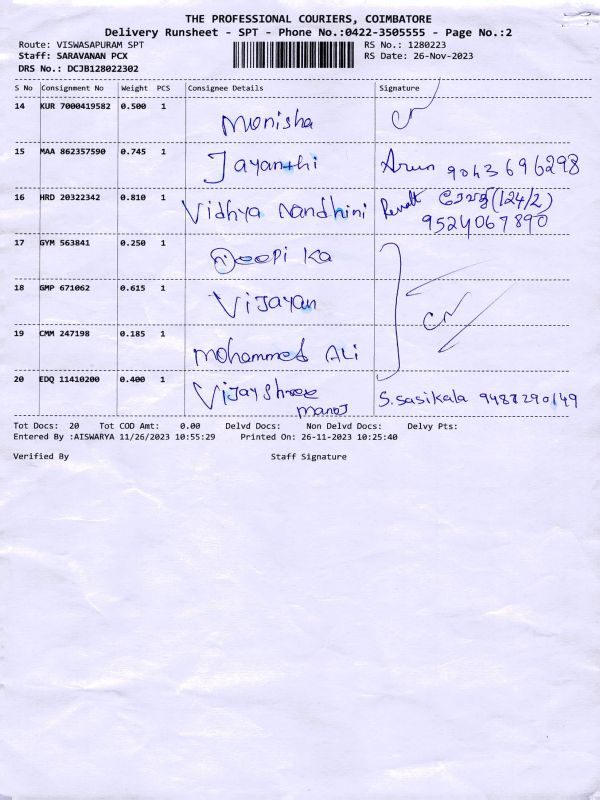 THE PROFESSIONAL COURIERS, COIMBATORE
Delivery Runsheet - SPT - Phone No.:0422-3505555 - Page No.:2
Route: VISWASAPURAM SPT RS No.: 1280223
Staff: SARAVANAN PCX RS Date: 26-Nov-2023
DRS No.: DCJB128022302
S No Consignment No Weight PCS Consignee Details Signature
14 KUR 7000419582 0.500 1 Monisha
15 MAA 862357590 0.745 1 Jayanthi Arun 9043696298
16 HRD 20322342 0.810 1 Vidhya Nandhini (124/2)
9524067890
17 GYM 563841 0.250 1 Deepi ka
18 GMP 671062 0.615 1 Vijayan
19 CMM 247198 0.185 1 Mohammed Ali
20 EDQ 11410200 0.400 1 Vijayshree S.Sasikala 9487290149
Manoj
Tot Docs: 20 Tot COD Amt: 0.00 Delvd Docs: Non Delvd Docs: Delvy Pts:
Entered By :AISWARYA 11/26/2023 10:55:29 Printed On: 26-11-2023 10:25:40
Verified By Staff Signature